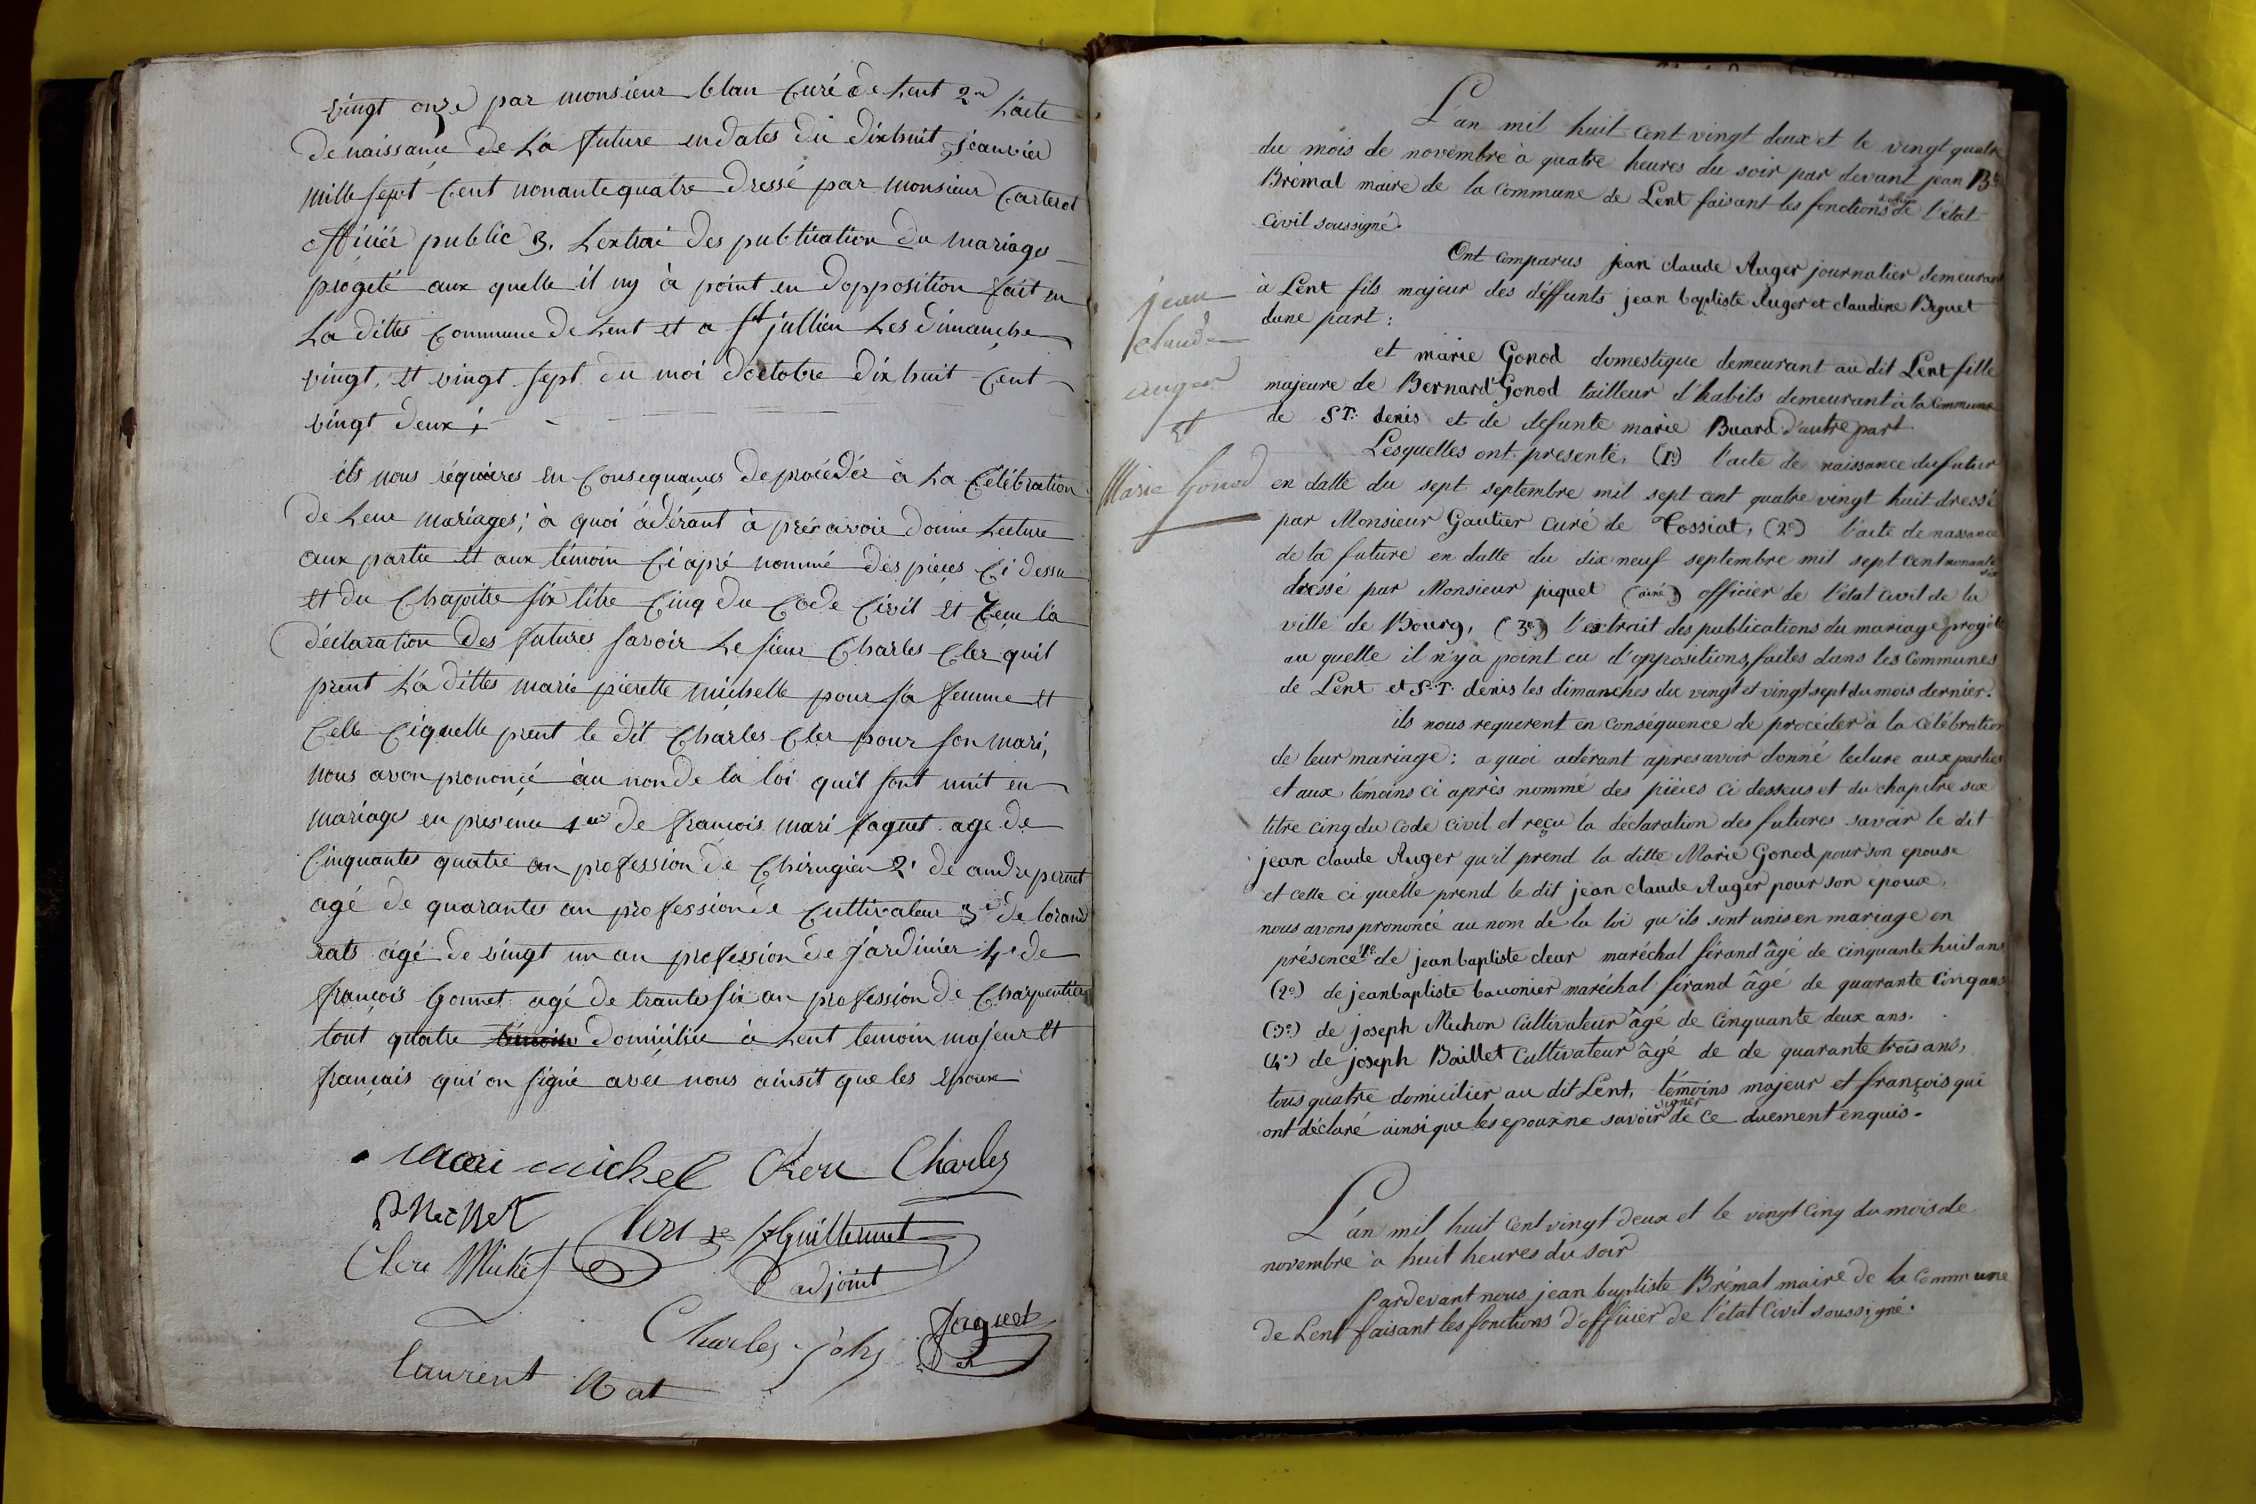 vingt onze par monsieur blan Curé de Lent 2.me L'acte
de naissance de La future en dates du dixhuit jeanvier
mille sept Cent nonante quatre dressé par monsieur Carteret
officiér public 3. L'extrai des publication du mariages
progeté aux quelle il ny à point eu dopposition fait en
La dittes Commune de Lent et a St jullien Les dimanche
vingt, et vingt sept du moi doctobre dix huit Cent
vingt deux;
ils nous réquires en Consequances de procédér à La Célébration
de Leur mariages; à quoi adérant à prés avoir donne Lecture
aux partie et aux témoin Ci apré nommé des pieces Ci dessu
et du Chapitre six titre Cinq du Code Civil et reçu la
déclaration des futures savoir Le sieur Charles Cler quil
prent La dittes marie pierette michelle pour sa femme et
Celle Ciquelle prent le dit Charles Cler pour son mari,
nous avon prononcé àu non de la loi quil sont unit en
mariage en presence 1er de françois mari jaquet age de
Cinquantes quatre an profession de Chirugien 2. de andre pernet
agé de quarantes an profession de Cultivateur 3. de lorand
rats agé de vingt un an profession de jardinier 4. de
françois Gonnet agé de trante six an profession de Charpentier
tout quatre témoin domicilie à Lent temoin majeur et
français qui on signé avec nous ainsit que les epoux
mari michel Cleru Charles
Pernet Cleru guillemet
Cleru Michel adjoint
Charles jaquet
laurent Rat
L'an mil huit cent vingt deux et le vingt quatre
du mois de novembre à quatre heures du soir par devant jean Bte
Brémal maire de la Commune de Lent faisant les fonctions d'officier de l'état
civil soussigné.
Ont comparus jean claude Auger journalier demeurant
à Lent fils majeur des déffunts jean baptiste Auger et claudine Beguet
dune part:
jean
claude
auger
et
Marie Gonod
et marie Gonod domestique demeurant au dit Lent fille
majeure de Bernard Gonod tailleur d'habits demeurant à la Commune
de St. denis et de defunte marie Buard d'autre part.
Lesquelles ont présenté, (1e) l'acte de naissance du futur
en datte du sept septembre mil sept cent quatre vingt huit dressé
par Monsieur Gautier curé de Tossiat, (2e) l'acte de naissance
de la future en datte du dix neuf septembre mil sept cent nonante six
dressé par Monsieur piquet (ainé) officier de l'état civil de la
ville de Bourg, (3e) l'extrait des publications du mariage progeté
au quelle il n'ya point eu d'oppositions, faites dans les Communes
de Lent et St. denis les dimanches du vingt et vingt sept du mois dernier.
ils nous requerent en conséquence de procéder à la célébration
de leur mariage: a quoi adérant apres avoir donné lecture aux parties
et aux témoins ci après nommé des pièces ci dessus et du chapitre six
titre cinq du code civil et reçu la déclaration des futures savoir le dit
jean claude Auger qu'il prend la ditte Marie Gonod pour son epouse
et celle ci quelle prend le dit jean claude Auger pour son epoux,
nous avons prononcé au nom de la loi qu'ils sont unis en mariage en
présence 1e de jean baptiste clear maréchal férand âgé de cinquante huit ans
(2e) de jean baptiste bavonier maréchal férand âgé de quarante Cinq ans
(3e) de joseph Michon Cultivateur âgé de Cinquante deux ans.
(4e) de joseph Baillet Cultivateur âgé de de quarante trois ans,
tous quatre domicilier au dit Lent, témoins majeur et françois qui
ont déclaré ainsi que les epoux ne savoir signer de ce duement enquis.
L'an mil huit Cent vingt deux et le vingt Cinq du mois de
novembre à huit heures du soir
Pardevant nous jean baptiste Brémal maire de la Commune
de Lent faisant les fonctions d'officier de l'état Civil soussigné.